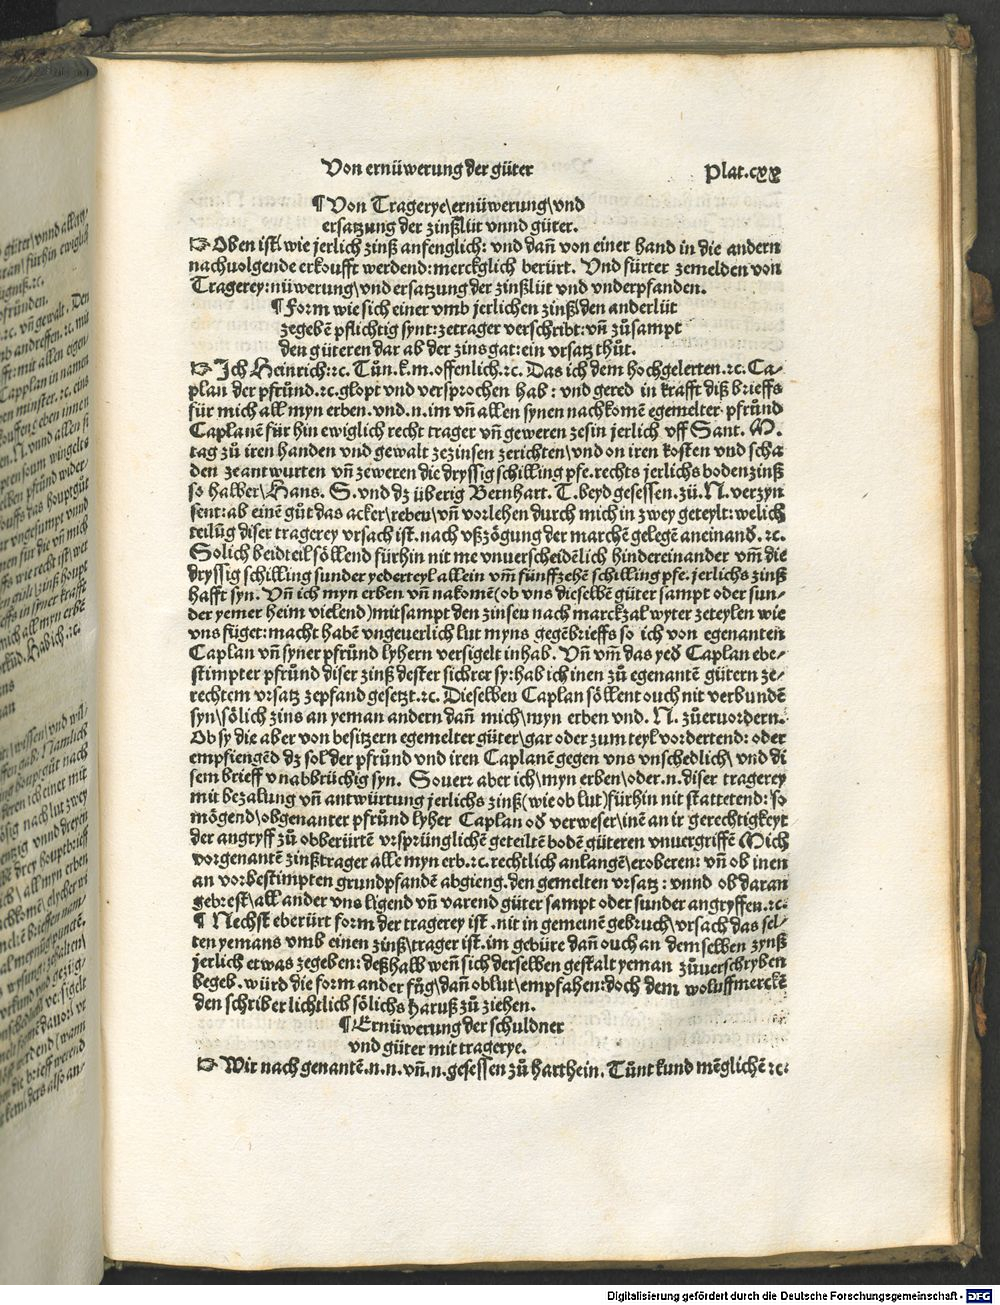 Von ernüwerung der güter Plat.cxx
¶ Von Tragerye\ernüwerung\vnd
ersatzung der zinßlüt vnnd güter.
☞ Oben ist\ wie jerlich zinß anfenglich: vnd dañ von einer hand in die andern
nachuolgende erkoufft werdend:merckglich berürt. Vnd fürter zemelden von
Tragerey:nüwerung\vnd ersatzung der zinßlüt vnd vnderpfanden.
¶ Form wie sich einer vmb jerlichen zinß\den anderlüt
zegebẽ pflichtig synt:zetrager verschribt:vñ zůsampt
den güteren dar ab der zins gat:ein vrsatz thůt.
☞ Ich Heinrich:⁊c. Tůn.k.m.offenlich.⁊c. Das ich dem hochgelerten.⁊c. Ca⸗
plan der pfrůnd.⁊c.glopt vnd versprochen hab : vnd gered in krafft diß brieffs
für mich all myn erben.vnd.n.im vñ allen synen nachkomẽ egemelter pfrůnd
Caplanẽ für hin ewiglich recht trager vñ geweren zesin jerlich vff Sant. M.
tag zů iren handen vnd gewalt zezinsen zerichten\vnd on iren kosten vnd scha
den zeantwurten vñ zeweren die dryssig schilling pfe.rechts jerlichs bodenzinß
so halber\Hans. S.vnd dz überig Bernhart. T.beyd gesessen.zů.N.verzyn
sent:ab einẽ gůt das acker\reben\vñ vorlehen durch mich in zwey geteylt:welich
teilũg diser tragerey vrsach ist.nach vßzögung der marchẽ gelegẽ aneinand̃.⁊c.
Solich beidteil söllend fürhin nit me vnuerscheidẽlich hindereinander vm̃ die
dryssig schilling sunder yederteyl allein vm̃ fünffzehẽ schilling pfe.jerlichs zinß
hafft syn. Vñ ich myn erben vñ nakomẽ(ob vns dieselbẽ güter sampt oder sun⸗
der yemer heim vielend)mitsampt den zinsen nach marckzal wyter zeteylen wie
vns füget:macht habẽ vngeuerlich lut myns gegẽbrieffs so ich von egenanten
Caplan vñ syner pfrůnd lyhern versigelt inhab. Vñ vm̃ das yed̃ Caplan ebe⸗
stimpter pfrůnd diser zinß dester sichrer sy:hab ich inen zů egenantẽ gütern ze⸗
rechtem vrsatz zepfand gesetzt.⁊c. Dieselben Caplan söllent ouch nit verbundẽ
syn\sölich zins an yeman andern dañ mich\myn erben vnd. N. zůeruordern.
Ob sy die aber von besitzern egemelter güter\gar oder zum teyl vordertend:oder
empfiengẽd dz sol der pfrůnd vnd iren Caplanẽ gegen vns vnschedlich\vnd di
sem brieff vnabbrüchig syn. Souerr aber ich\myn erben\oder.n.diser tragerey
mit bezalung vñ antwürtung jerlichs zinß(wie ob lut)fürhin nit stattetend:so
mögend\obgenanter pfrůnd lyher Caplan od̃ verweser\inẽ an ir gerechtigkeyt
der angryff zů obberürtẽ vrsprünglichẽ geteiltẽ bodẽ güteren vnuergriffẽ Mich
vorgenantẽ zinßtrager alle myn erb.⁊c.rechtlich anlangẽ\eroberen: vñ ob inen
an vorbestimpten grundpfandẽ abgieng.den gemelten vrsatz : vnnd ob daran
gebrest\all ander vns ligend vñ varend güter sampt oder sunder angryffen.⁊c.
¶ Nechst eberürt form der tragerey ist .nit in gemeinẽ gebruch\vrsach das sel⸗
ten yemans vmb einen zinß\trager ist.im gebüre dañ ouch an demselben zynß
jerlich etwas zegeben:deßhalb weñ sich derselben gestalt yeman zůverschryben
begeb.würd die form ander fũg\dañ oblut\empfahen:doch dem woluffmerckẽ
den schriber lichtlich sölichs haruß zů ziehen.
¶ Ernüwerung der schuldner
vnd güter mit tragerye.
☞ Wir nach genantẽ.n.n.vñ.n.gesessen zů harthein. Tůnt kund mẽglichẽ ⁊c:
Digitalisierung gefördert durch die Deutsche Forschungsgemeinschaft - DFG